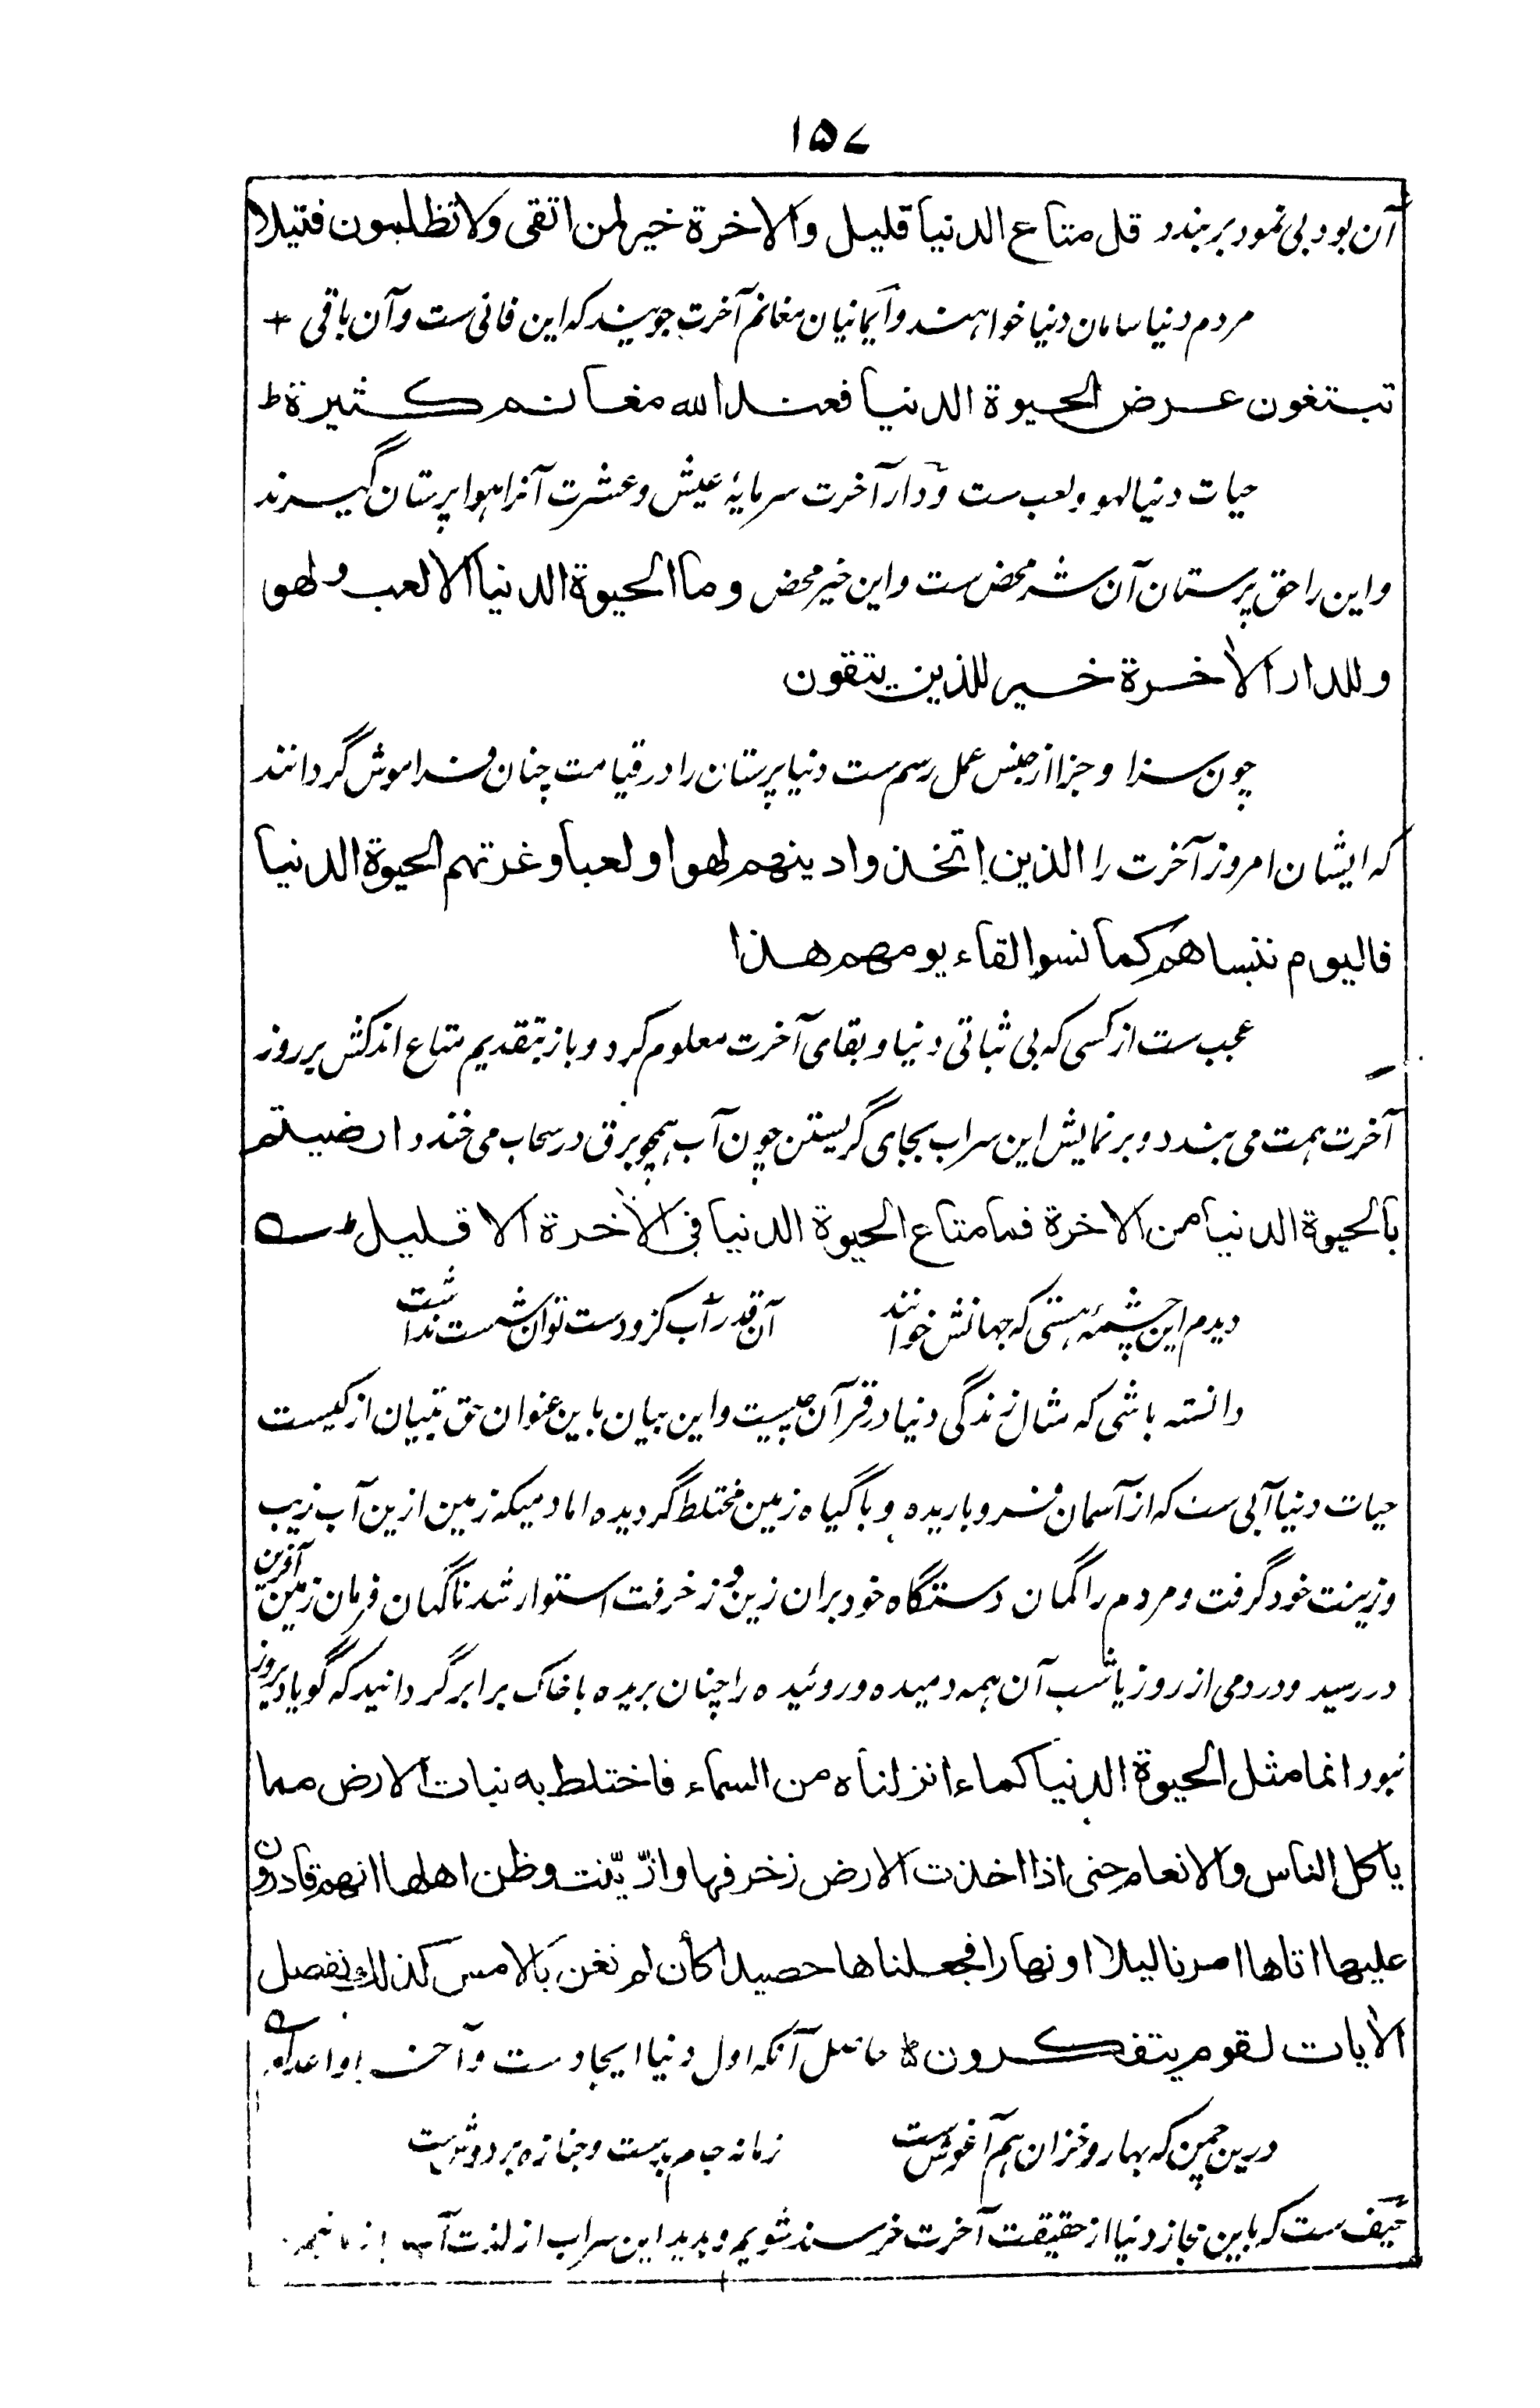 ۱۵۷
آن بود بی نمود بر بندد قل متاع الدنیا قلیل والاخرة خیر لمن اتقی ولا تظلمون فتیلا
مردم دنیا سامان دنیا خواهند و ایمانیان مغانم آخرت جویند که این فانی ست و آن باقی +
تبتغون عرض الحیوة الدنیا فعند الله مغانم کثیرة ط
حیات دنیا لهو و لعب ست و دار آخرت سرمایۂ عیش و عشرت آنرا هوا پرستان گیرند
و این را حق پرستان آن شر محض ست و این خیر محض وما الحیوة الدنیا الا لعب ولهو
وللدار الاٰخرة خیر للذین یتقون
چون سزا و جزا از جنس عمل رسم ست دنیا پرستان را در قیامت چنان فراموش گردانند
که ایشان امروز آخرت را الذین اتخذوا دینهم لهوا ولعبا وغرتهم الحیوة الدنیا
فالیوم ننساهم کما نسوا لقاء یومهم هذا
عجب ست از کسی که بی ثباتی دنیا و بقای آخرت معلوم کرد و باز بتقدیم متاع اندکش بر روز
آخرت همت می بندد و بر نمایش این سراب بجای گریستن چون آب همچو برق در سحاب می خندد ارضیتم
بالحیوة الدنیا من الاخرة فما متاع الحیوة الدنیا فی الاٰخرة الا قلیل ط
دیدم این چشمۂ هستی که جهانش خوانند آن قدر آب کزو دست توان شست نداشت
دانسته باشی که مثال زندگی دنیا در قرآن چیست و این بیان باین عنوان حق تبیان از کیست
حیات دنیا آبی ست که از آسمان فرو باریده و با گیاه زمین مختلط گردیده اما دمیکه زمین ازین آب زیب
و زینت خود گرفت و مردم را گمان دستگاه خود بران زین و زخرفت استوار شد ناگهان فرمان زمین آفرین
در رسید و در دمی از روز یا شب آن همه دمیده و روئیده را چنان بریده با خاک برابر گردانید که گویا دیروز
نبود انما مثل الحیوة الدنیا کماء انزلناه من السماء فاختلط به نبات الارض مما
یاکل الناس والانعام حتی اذا اخذت الارض زخرفها وازّیّنت وظن اهلها انهم قادرون
علیها اتاها امرنا لیلا او نهارا فجعلناها حصیدا کأن لم تغن بالامس کذلک نفصل
الاٰیات لقوم یتفکرون ط حاصل آنکه اول دنیا ایجادست و آخر او اعدام
درین چمن که بهار و خزان هم آغوش ست زمانه جام بدست و جنازه بر دوش ست
حیف ست که باین مجاز دنیا از حقیقت آخرت خرسند شویم و بدید این سراب از لذت آب